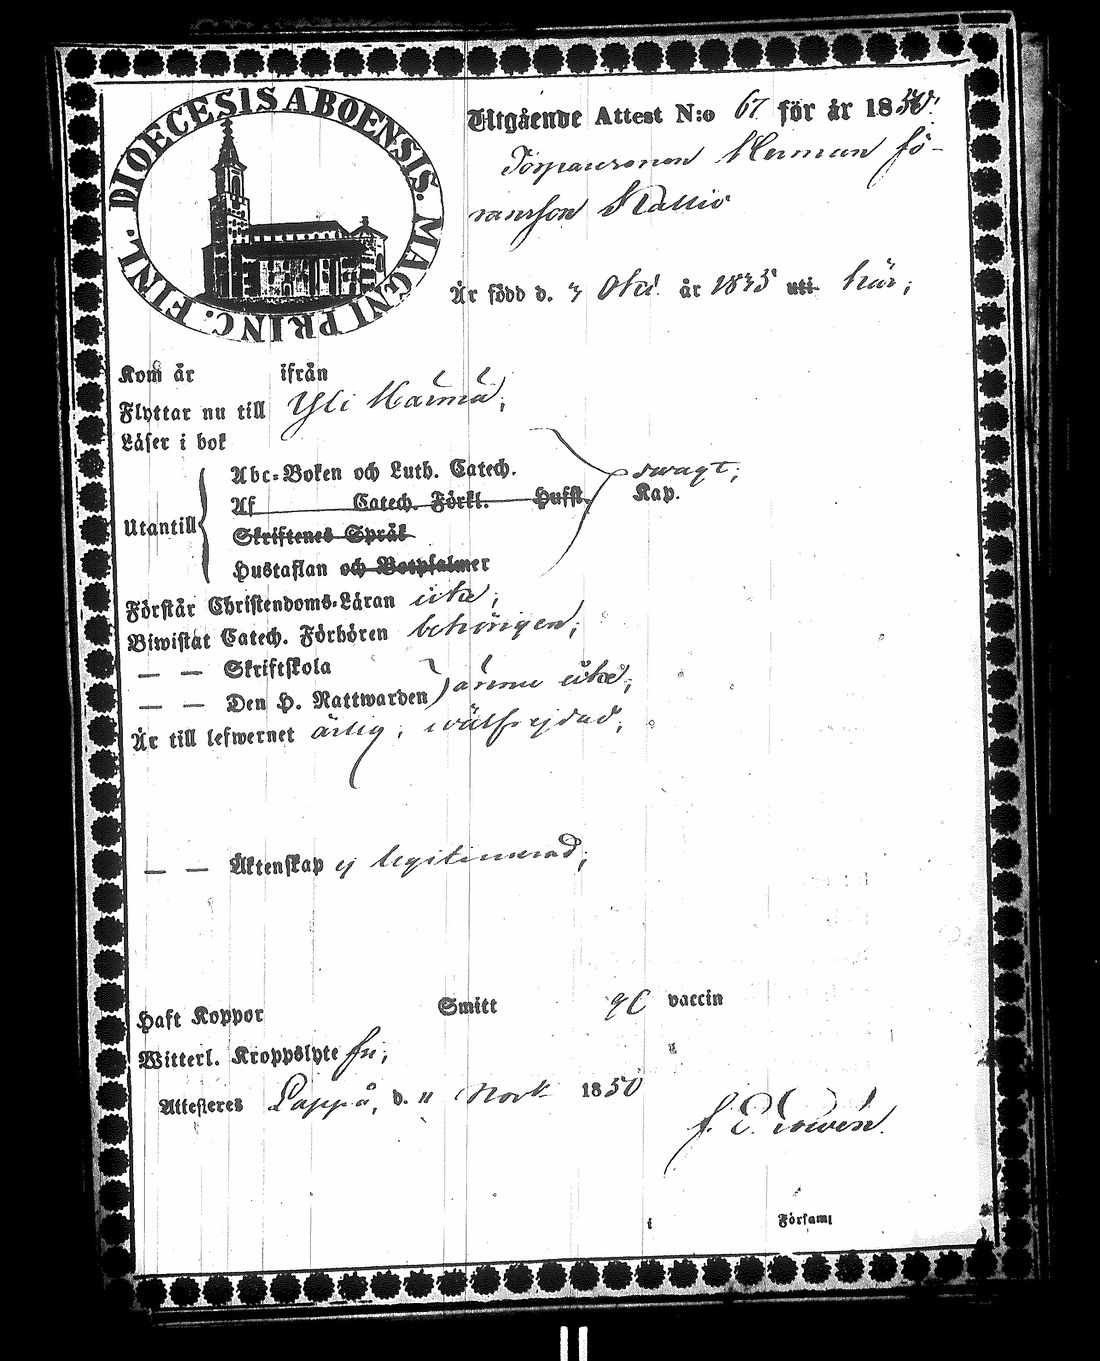 DIOECESIS ABOENSIS. MAGNI PRINC. FINL.
Utgående Attest N:o 67 för år 1850.
Torparesonen Herman Jo-
hansson Kallio
Är född d. 3 Oktr. år 1835 uti här;
Kom år ifrån
Flyttar nu till Yli Härmä;
Läser i bok
Abc-Boken och Luth. Catech. swagt;
Af Catech. Förkl. Hufst. Kap.
Utantill
Skriftenes Språk
Hustaflan och Botpsalmer
Förstår Christendoms-Läran icke;
Biwistat Catech. Förhören behörigen;
— — Skriftskola
— — Den H. Nattwarden ännu icke;
Är till lefwernet ärlig, wälfrejdad;
— — Äktenskap ej legitimerad;
Haft Koppor Smitt vaccin
Witterl. Kroppslyte fri;
Attesteres Lappå, d. 11 Novb. 1850
i Församl